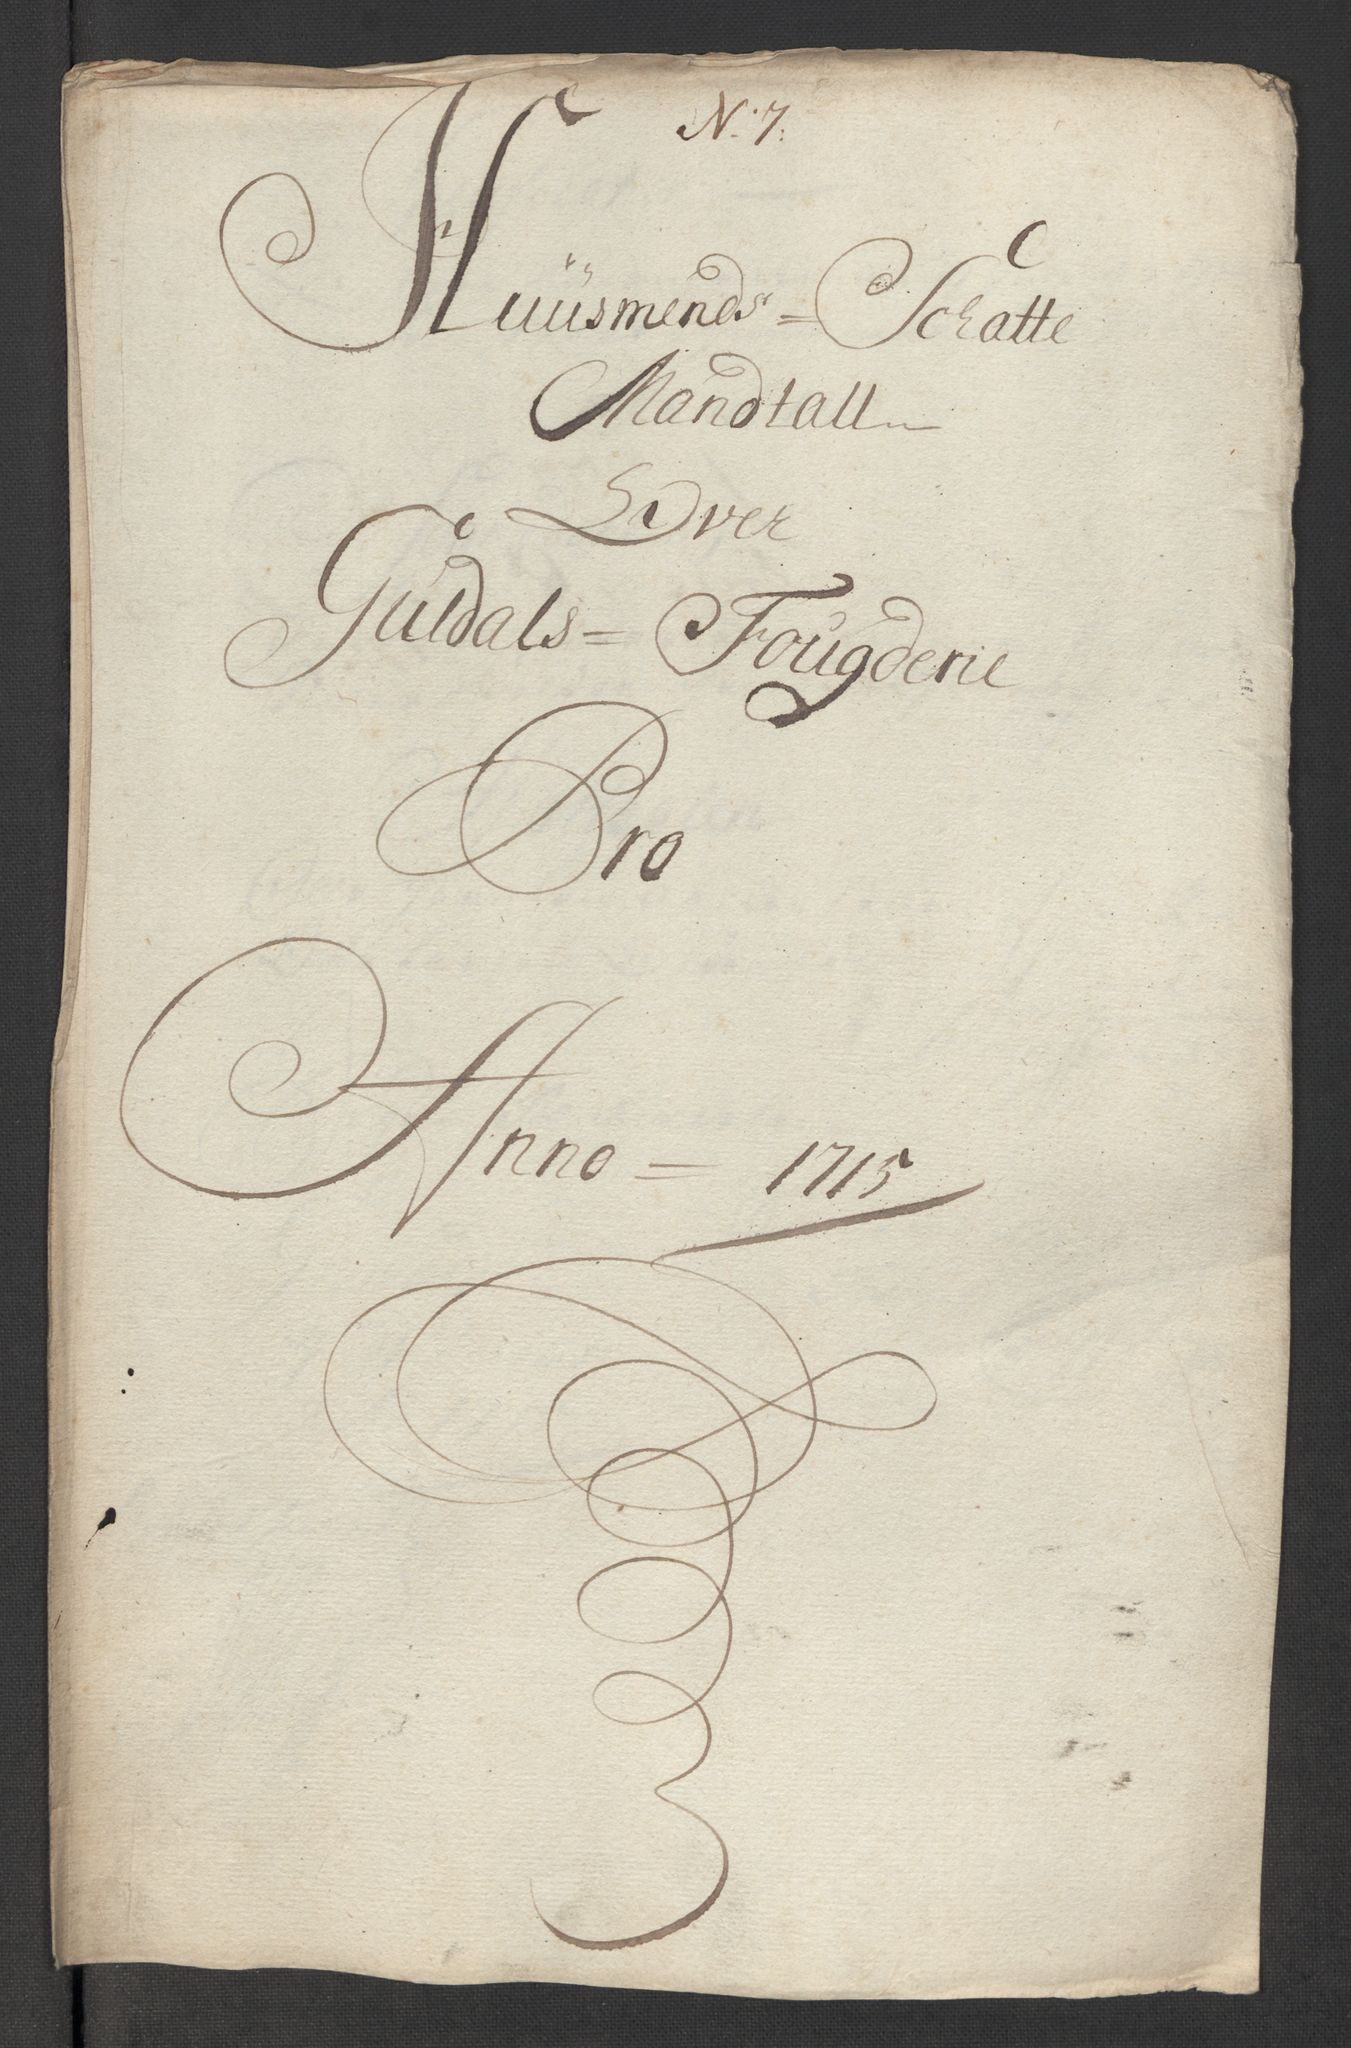 N: 7.
Huusmends= Schatte
Mandtall
Over
Guldals= Fougderie
Pro
Anno = 1715